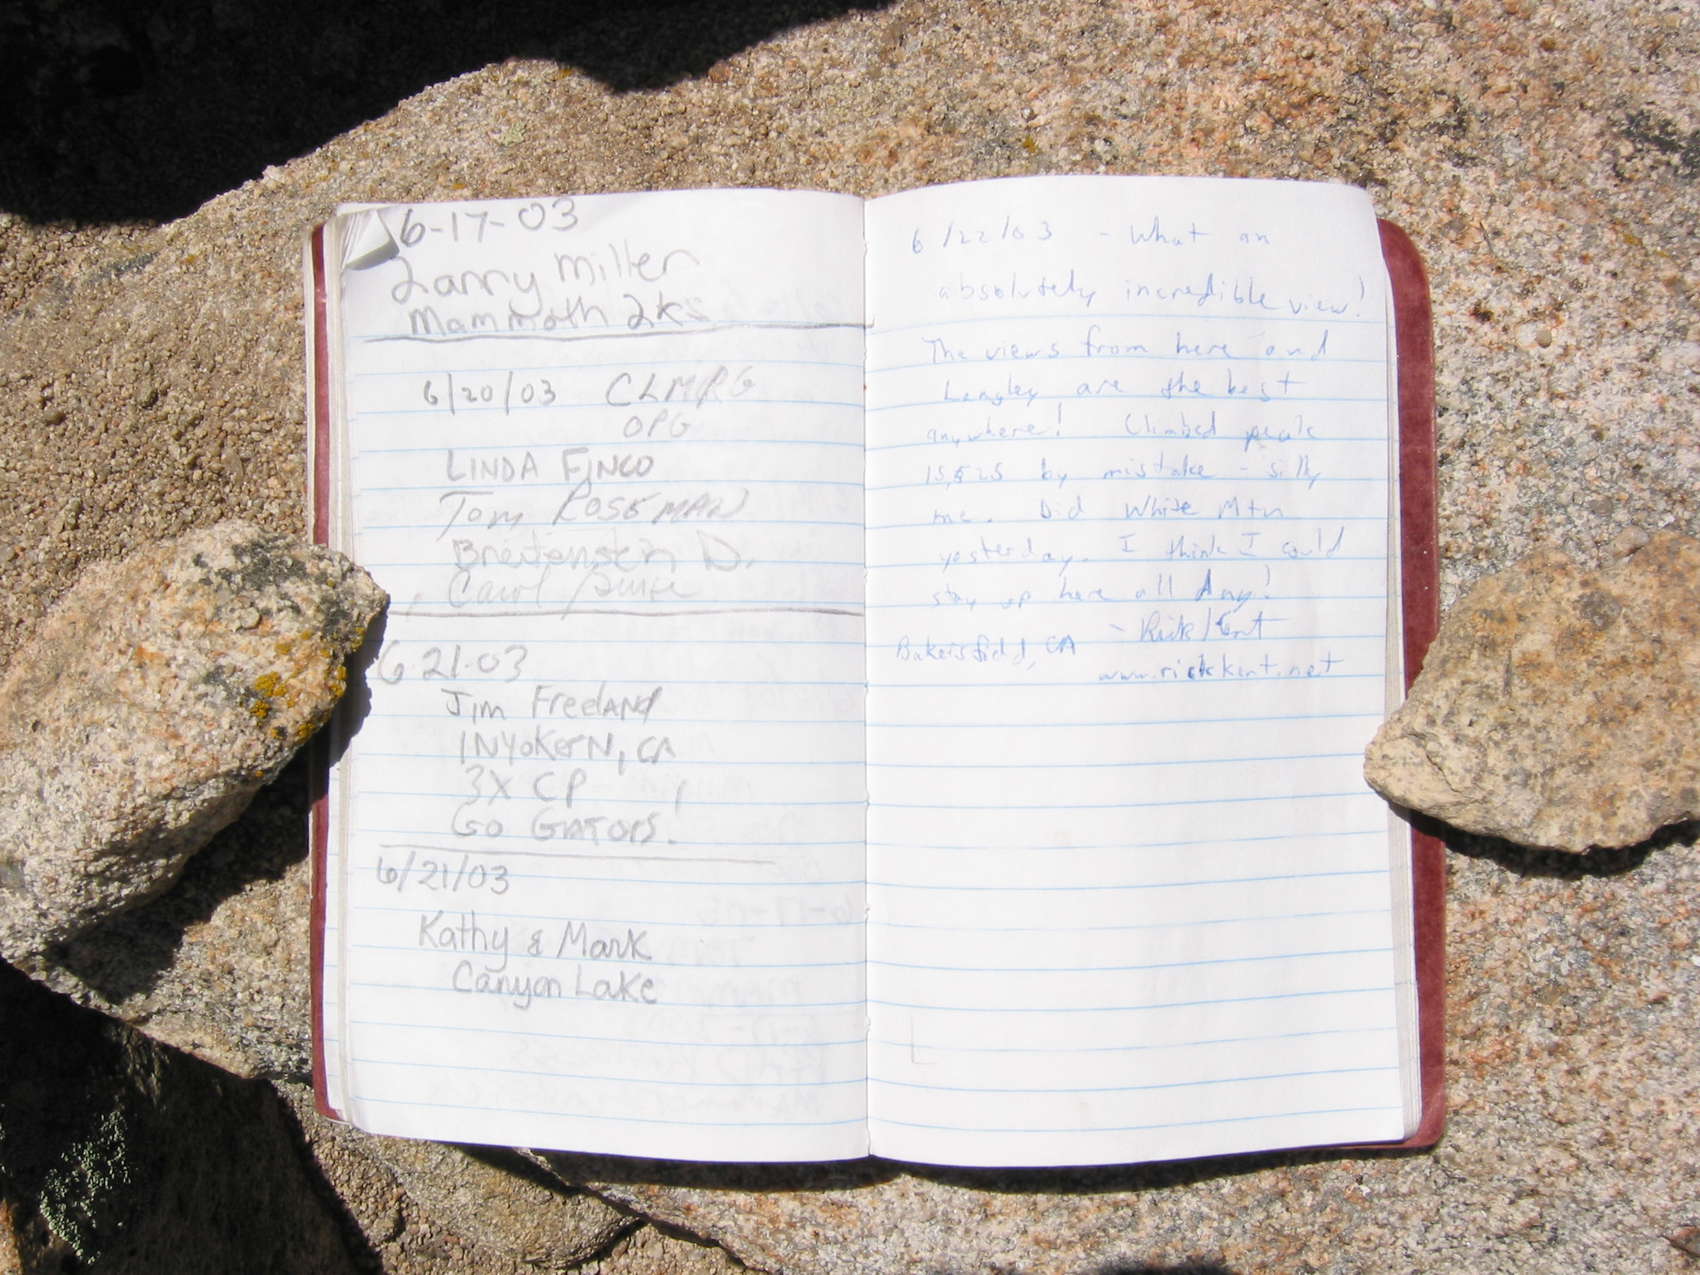 6-17-03
Larry Miller
Mammoth 2ks
6/20/03 CLMRG
OPG
LINDA FINCO
Tom ROSEMAN
Breitenstein D.
Carol
6-21-03
Jim Freeland
INYOKERN, CA
3X CP
GO GATORS!
6/21/03
Kathy & Mark
Canyon Lake
6/22/03 - What an
absolutely incredible view!
The views from here and
Langley are the best
anywhere! Climbed peak
by mistake - silly
me. Did White Mtn
yesterday. I think I could
stay up here all day!
- Rick Kent
Bakersfield, CA
www.rickkent.net